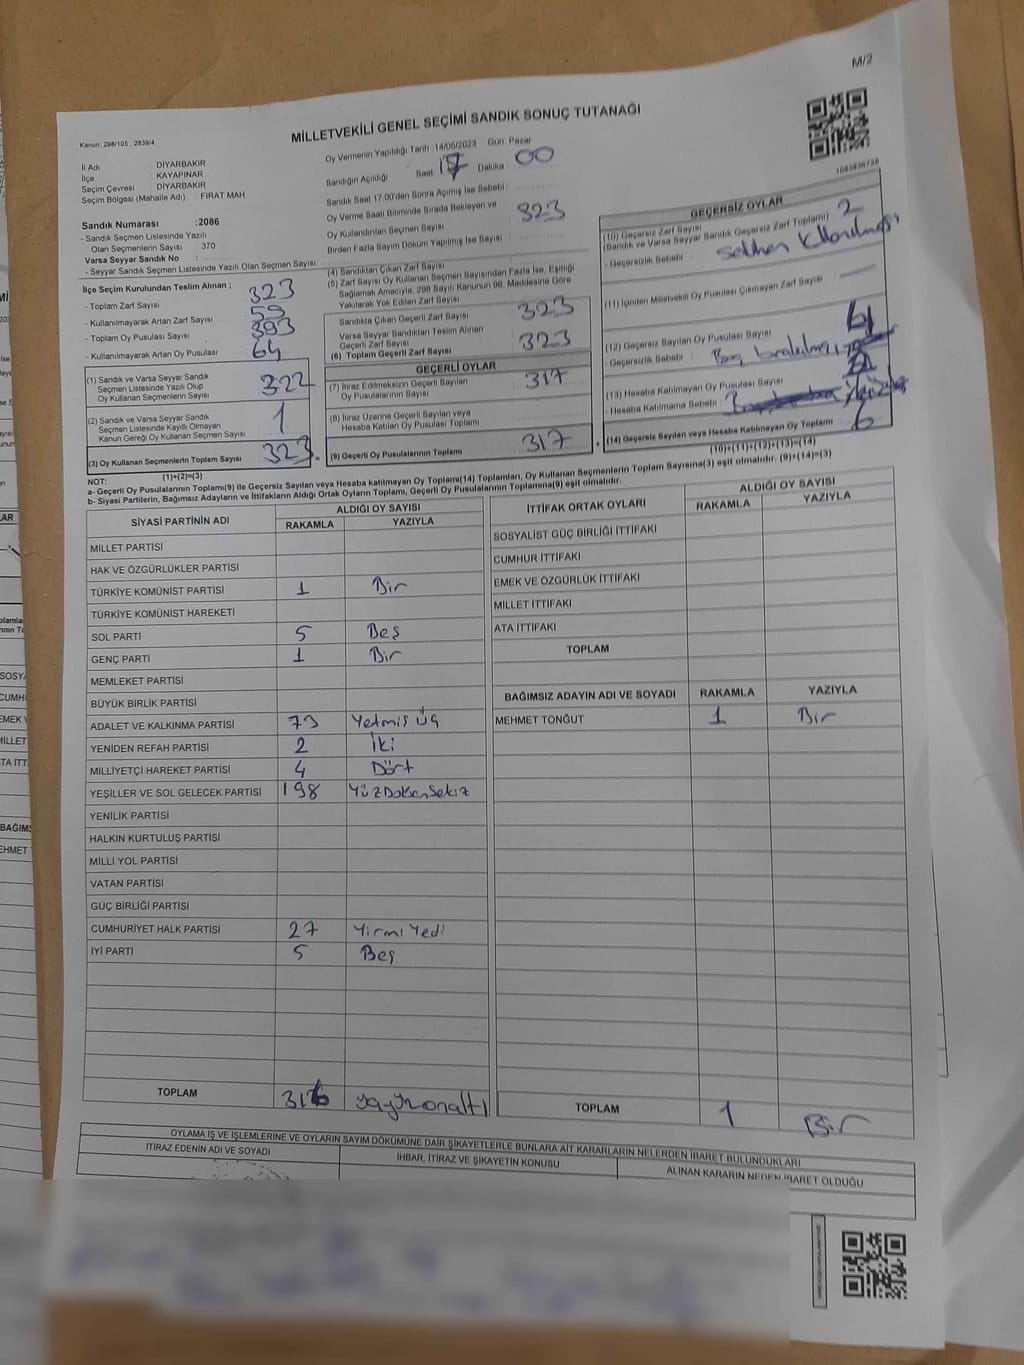 M/2
MİLLETVEKİLİ GENEL SEÇİMİ SANDIK SONUÇ TUTANAĞI
Kanun: 298/105 , 2839/4
İl Adı : DİYARBAKIR
İlçe : KAYAPINAR
Seçim Çevresi : DİYARBAKIR
Seçim Bölgesi (Mahalle Adı) : FIRAT MAH
Sandık Numarası :2086
- Sandık Seçmen Listesinde Yazılı
Olan Seçmenlerin Sayısı : 370
Varsa Seyyar Sandık No :
- Seyyar Sandık Seçmen Listesinde Yazılı Olan Seçmen Sayısı
Oy Vermenin Yapıldığı Tarih : 14/05/2023 Gün Pazar
Sandığın Açıldığı Saat 17 Dakika 00
Sandık Saat 17.00'den Sonra Açımış İse Sebebi
Oy Verme Saati Bitiminde Sırada Bekleyen ve
Oy Kullandırılan Seçmen Sayısı 323
Birden Fazla Sayım Döküm Yapılmış İse Sayısı
İlçe Seçim Kurulundan Teslim Alınan ;
- Toplam Zarf Sayısı 323
- Kullanılmayarak Artan Zarf Sayısı
- Toplam Oy Pusulası Sayısı 393
- Kullanılmayarak Artan Oy Pusulası 64
(1) Sandık ve Varsa Seyyar Sandık
Seçmen Listesinde Yazılı Olup
Oy Kullanan Seçmenlerin Sayısı 322
(2) Sandık ve Varsa Seyyar Sandık
Seçmen Listesinde Kayıtlı Olmayan
Kanun Gereği Oy Kullanan Seçmen Sayısı 1
(3) Oy Kullanan Seçmenlerin Toplam Sayısı 323
(1)+(2)=(3)
(4) Sandıktan Çıkan Zarf Sayısı
(5) Zarf Sayısı Oy Kullanan Seçmen Sayısından Fazla İse, Eşitliği
Sağlamak Amacıyla, 298 Sayılı Kanunun 98. Maddesine Göre
Yakılarak Yok Edilen Zarf Sayısı
Sandıkta Çıkan Geçerli Zarf Sayısı 323
Varsa Seyyar Sandıktan Teslim Alınan
Geçerli Zarf Sayısı
(6) Toplam Geçerli Zarf Sayısı 323
GEÇERLİ OYLAR
(7) İtiraz Edilmeksizin Geçerli Sayılan
Oy Pusulalarının Sayısı 317
(8) İtiraz Üzerine Geçerli Sayılan veya
Hesaba Katılan Oy Pusulası Toplamı
(9) Geçerli Oy Pusulalarının Toplamı 317
1683836728
GEÇERSİZ OYLAR
(10) Geçersiz Zarf Sayısı 2
(Sandık ve Varsa Seyyar Sandık Geçersiz Zarf Toplamı)
- Geçersizlik Sebebi :
(11) İçinden Milletvekili Oy Pusulası Çıkmayan Zarf Sayısı
(12) Geçersiz Sayılan Oy Pusulası Sayısı
- Geçersizlik Sebebi : Boş bırakılmış
(13) Hesaba Katılmayan Oy Pusulası Sayısı
- Hesaba Katılmama Sebebi :
(14) Geçersiz Sayılan veya Hesaba Katılmayan Oy Toplamı 6
(10)+(11)+(12)+(13)=(14)
NOT:
a- Geçerli Oy Pusulalarının Toplamı(9) ile Geçersiz Sayılan veya Hesaba katılmayan Oy Toplamı(14) Toplamları, Oy Kullanan Seçmenlerin Toplam Sayısına(3) eşit olmalıdır. (9)+(14)=(3)
b- Siyasi Partilerin, Bağımsız Adayların ve İttifakların Aldığı Ortak Oyların Toplamı, Geçerli Oy Pusulalarının Toplamına(9) eşit olmalıdır.
SİYASİ PARTİNİN ADI ALDIĞI OY SAYISI
RAKAMLA YAZIYLA
MİLLET PARTİSİ
HAK VE ÖZGÜRLÜKLER PARTİSİ
TÜRKİYE KOMÜNİST PARTİSİ 1 Bir
TÜRKİYE KOMÜNİST HAREKETİ
SOL PARTİ 5 Beş
GENÇ PARTİ 1 Bir
MEMLEKET PARTİSİ
BÜYÜK BİRLİK PARTİSİ
ADALET VE KALKINMA PARTİSİ 73 Yetmiş üç
YENİDEN REFAH PARTİSİ 2 İki
MİLLİYETÇİ HAREKET PARTİSİ 4 Dört
YEŞİLLER VE SOL GELECEK PARTİSİ 198 YüzDoksanSekiz
YENİLİK PARTİSİ
HALKIN KURTULUŞ PARTİSİ
MİLLİ YOL PARTİSİ
VATAN PARTİSİ
GÜÇ BİRLİĞİ PARTİSİ
CUMHURİYET HALK PARTİSİ 27 Yirmi Yedi
İYİ PARTİ 5 Beş
TOPLAM 316
İTTİFAK ORTAK OYLARI ALDIĞI OY SAYISI
RAKAMLA YAZIYLA
SOSYALİST GÜÇ BİRLİĞİ İTTİFAKI
CUMHUR İTTİFAKI
EMEK VE ÖZGÜRLÜK İTTİFAKI
MİLLET İTTİFAKI
ATA İTTİFAKI
TOPLAM
BAĞIMSIZ ADAYIN ADI VE SOYADI RAKAMLA YAZIYLA
MEHMET TONĞUT 1 Bir
TOPLAM 1 Bir
OYLAMA İŞ VE İŞLEMLERİNE VE OYLARIN SAYIM DÖKÜMÜNE DAİR ŞİKAYETLERLE BUNLARA AİT KARARLARIN NELERDEN İBARET BULUNDUKLARI
İTİRAZ EDENİN ADI VE SOYADI
İHBAR, İTİRAZ VE ŞİKAYETİN KONUSU
ALINAN KARARIN NEDEN İBARET OLDUĞU